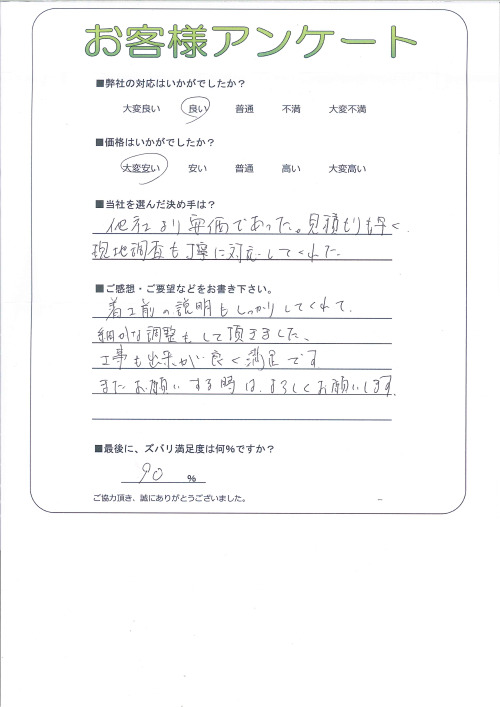 お客様アンケート
■弊社の対応はいかがでしたか？
大変良い 良い 普通 不満 大変不満
■価格はいかがでしたか？
大変安い 安い 普通 高い 大変高い
■当社を選んだ決め手は？
他社より安価であった。見積もりも早く、
現地調査も丁寧に対応してくれた。
■ご感想・ご要望などをお書き下さい。
着工前の説明もしっかりしてくれて、
細かな調整もして頂きました、
工事も出来が良く満足です
またお願いする時は、よろしくお願いします。
■最後に、ズバリ満足度は何%ですか？
90 %
ご協力頂き、誠にありがとうございました。